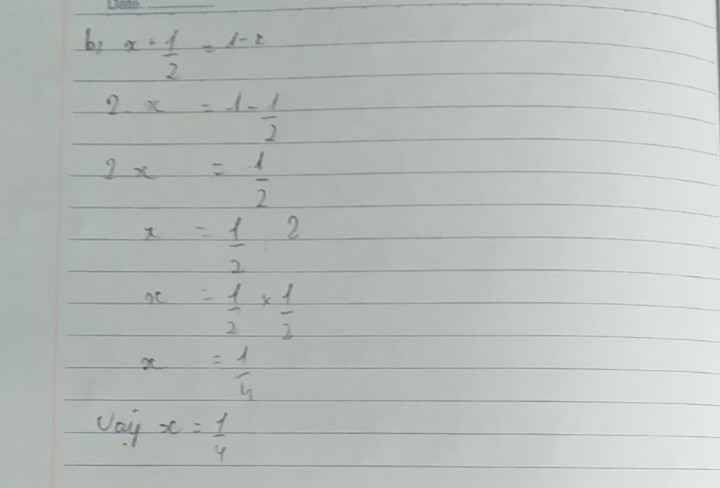 Date
b, x + 1/2 = 1 - x
2 x = 1 - 1/2
2 x = 1/2
x = 1/2 2
x = 1/2 × 1/2
x = 1/4
Vậy x = 1/4